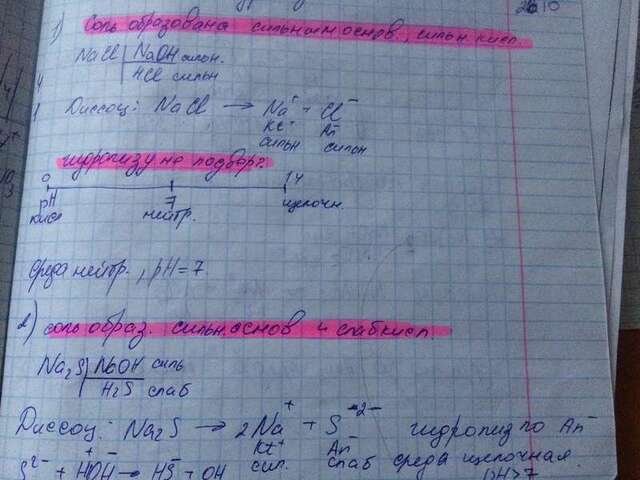 1) соль образована сильным основ. сильн кисл.
NaCl | NaOH сильн.
HCl сильн
Диссоц: NaCl → Na⁺ + Cl⁻
Kt⁺ An⁻
сильн сильн
гидролизу не подверг.
0 7 14
pH
кисл нейтр. щелочн.
среда нейтр. pH=7
2) соль образ. сильн основ и слаб кисл
Na₂S | NaOH сильн
H₂S слаб
Диссоц: Na₂S → 2Na⁺ + S²⁻ гидролиз по An⁻
Kt⁺ An⁻
сил. слаб среда щелочная.
S²⁻ + HOH → HS⁻ + OH
pH>7